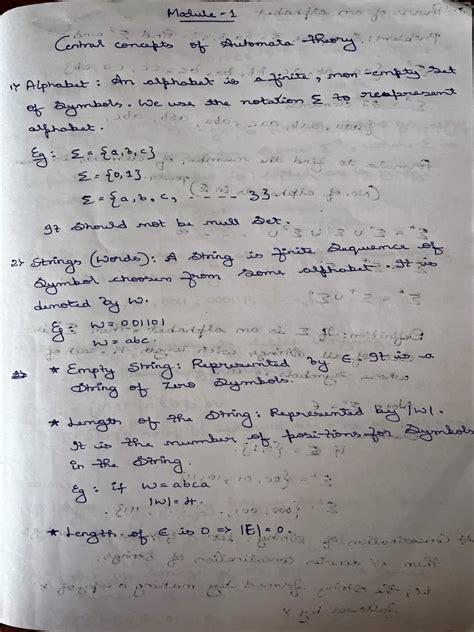 Module - 1
Central concepts of Automata Theory.
1) Alphabet : An alphabet is a finite, non-empty set
of Symbols. We use the notation Σ to reapresent
alphabet.
Eg : Σ = {a, b, c}
Σ = {0, 1}
Σ = {a, b, c, - - - - - z}
It should not be null set.
2) Strings (Words) : A String is finite Sequence of
Symbol choosen from Some alphabet. It is
denoted by W.
Eg : W = 001101
W = abc.
* Empty String : Represented by ϵ. It is a
String of Zero Symbols.
* Length of the String : Represented by |W|.
It is the number of positions for Symbols
in the String.
Eg : if W = abca
|W| = 4.
* Length of ϵ is 0 => |E| = 0.